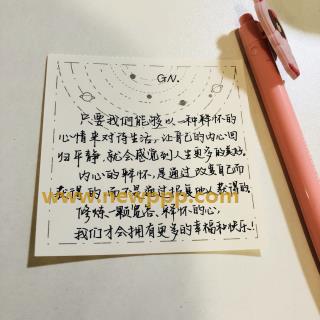 GN.
只要我们能够以一种释怀的
心情来对待生活,让自己的内心回
归平静,就会感觉到人生更多的美好。
内心的释怀,是通过改变自己而
获得的,而不是通过报复他人获得的
www.newppp.com
修炼一颗宽容、释怀的心,
我们才会拥有更多的幸福和快乐!